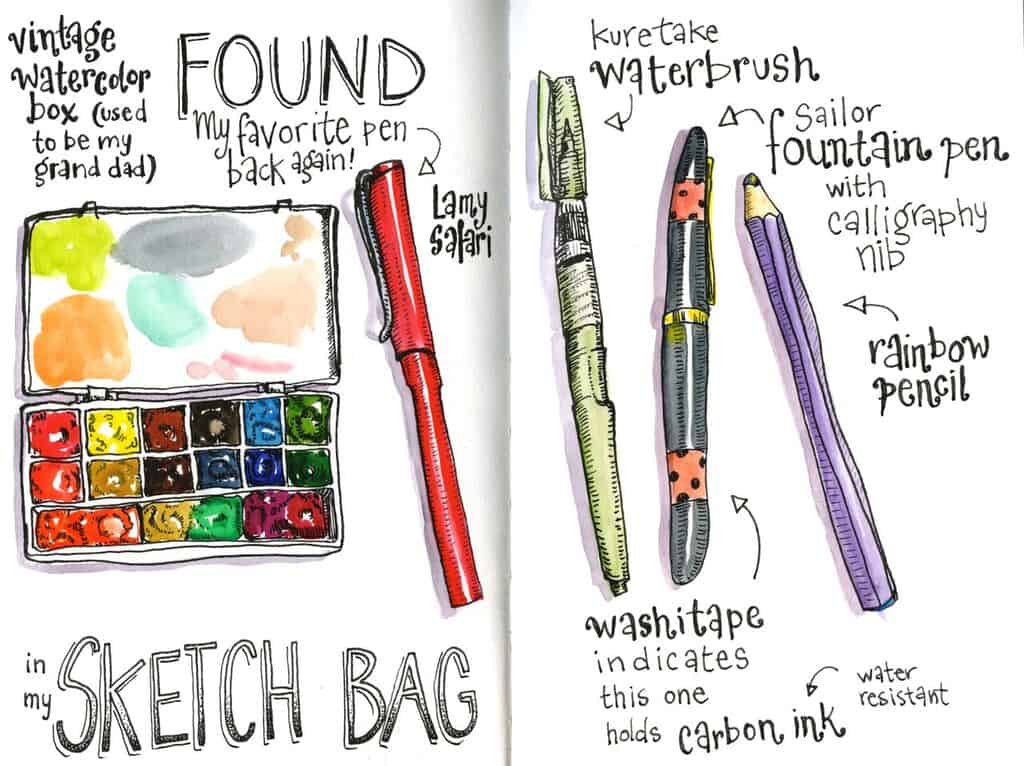 vintage
watercolor
box (used
to be my
grand dad)
FOUND
My favorite pen
back again!
Lamy
safari
in
my
SKETCH BAG
kuretake
waterbrush
Sailor
fountain pen
with
calligraphy
nib
rainbow
pencil
washitape
indicates
this one
holds carbon ink
water
resistant